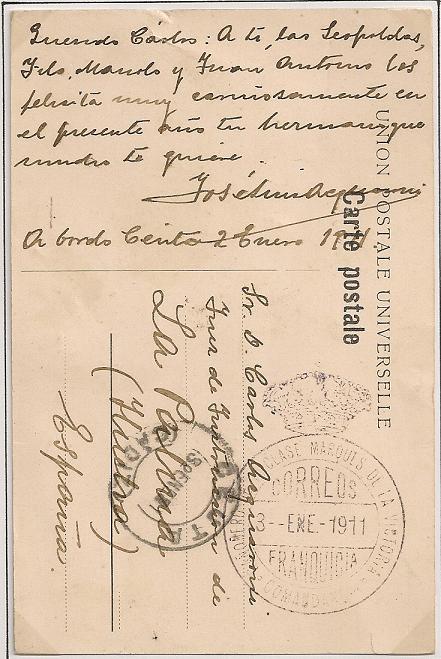 Querido Carlos: A ti, las Leopoldas,
Filo, Manolo y Juan Antonio les
felicita muy cariñosamente en
el presente año tu hermano que
mucho te quiere.
José Luis
A bordo Ceuta 2 Enero 1911
UNION POSTALE UNIVERSELLE
Carte postale
Sr. D. Carlos
Juez de Instrucción de
La Palma
(Huelva)
España.
MARQUÉS DE LA VICTORIA
CORREOS
3 - ENE - 1911
FRANQUICIA